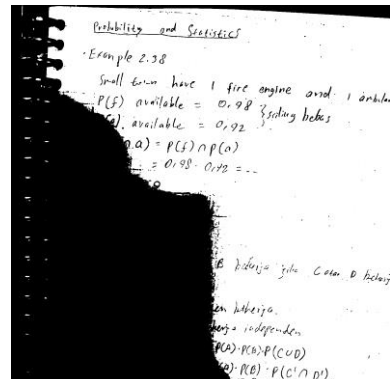 Probability and Statistics
• Example 2.38
Small town have 1 fire engine and 1 ambulan
P(f) available = 0,98 } saling bebas
available = 0,92
a) = P(f) ∩ P(a)
= 0,98 ·
B bekerja jika C atau D bekerj
bekerja.
independen
P(A)·P(B)·P(C∪D)
P(A)·P(B)·P(C'∩D')